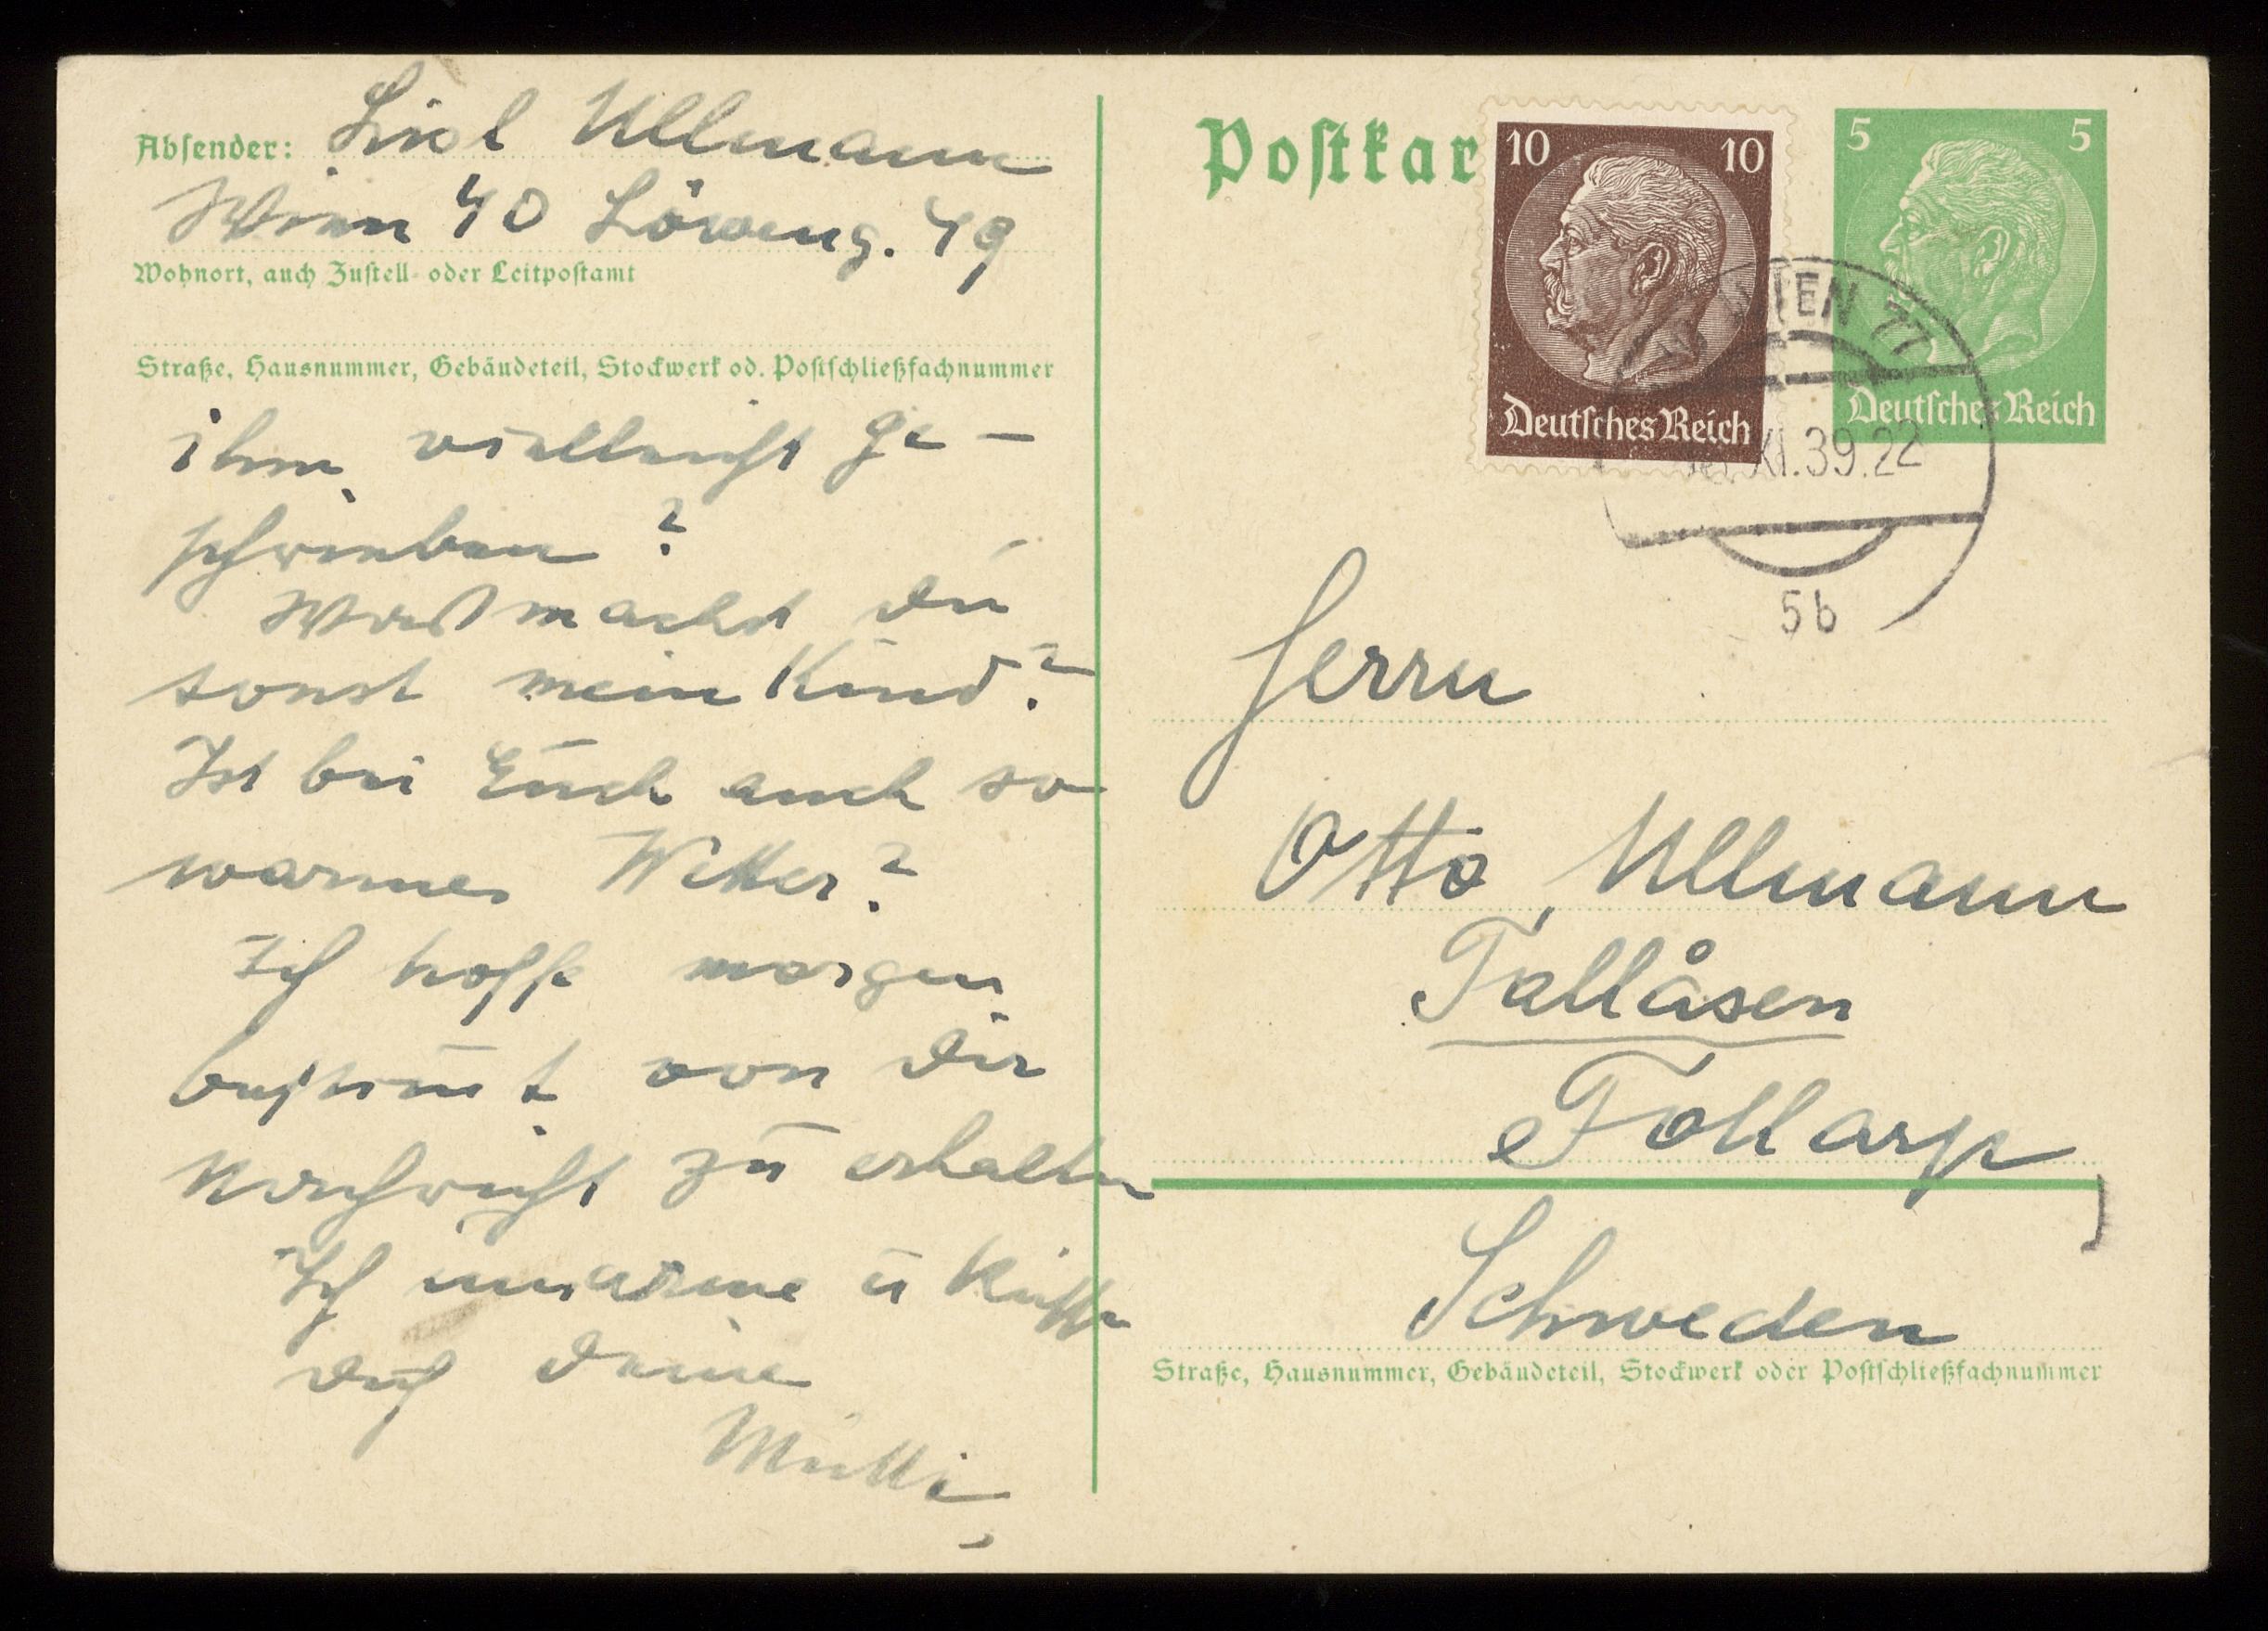 Absender: Lisl Ullmann
Wien 40 Löweng. 49
Wohnort, auch Zustell- oder Leitpostamt
Straße, Hausnummer, Gebäudeteil, Stockwerk od. Postschließfachnummer
ihm vielleicht ge-
schrieben?
Was machst Du
sonst mein Kind?
Ist bei Euch auch so
warmes Wetter?
Ich hoffe morgen
bestim̅t von Dir
Nachricht zu erhalten
Ich umarme u küsse
Dich Deine
Mutti
Postkar
10 10
Deutsches Reich
5 5
Deutsches Reich
WIEN 77
XI.39.22
5b
Herrn
Otto Ullmann
Tallåsen
Tollarp
Schweden
Straße, Hausnummer, Gebäudeteil, Stockwerk oder Postschließfachnummer